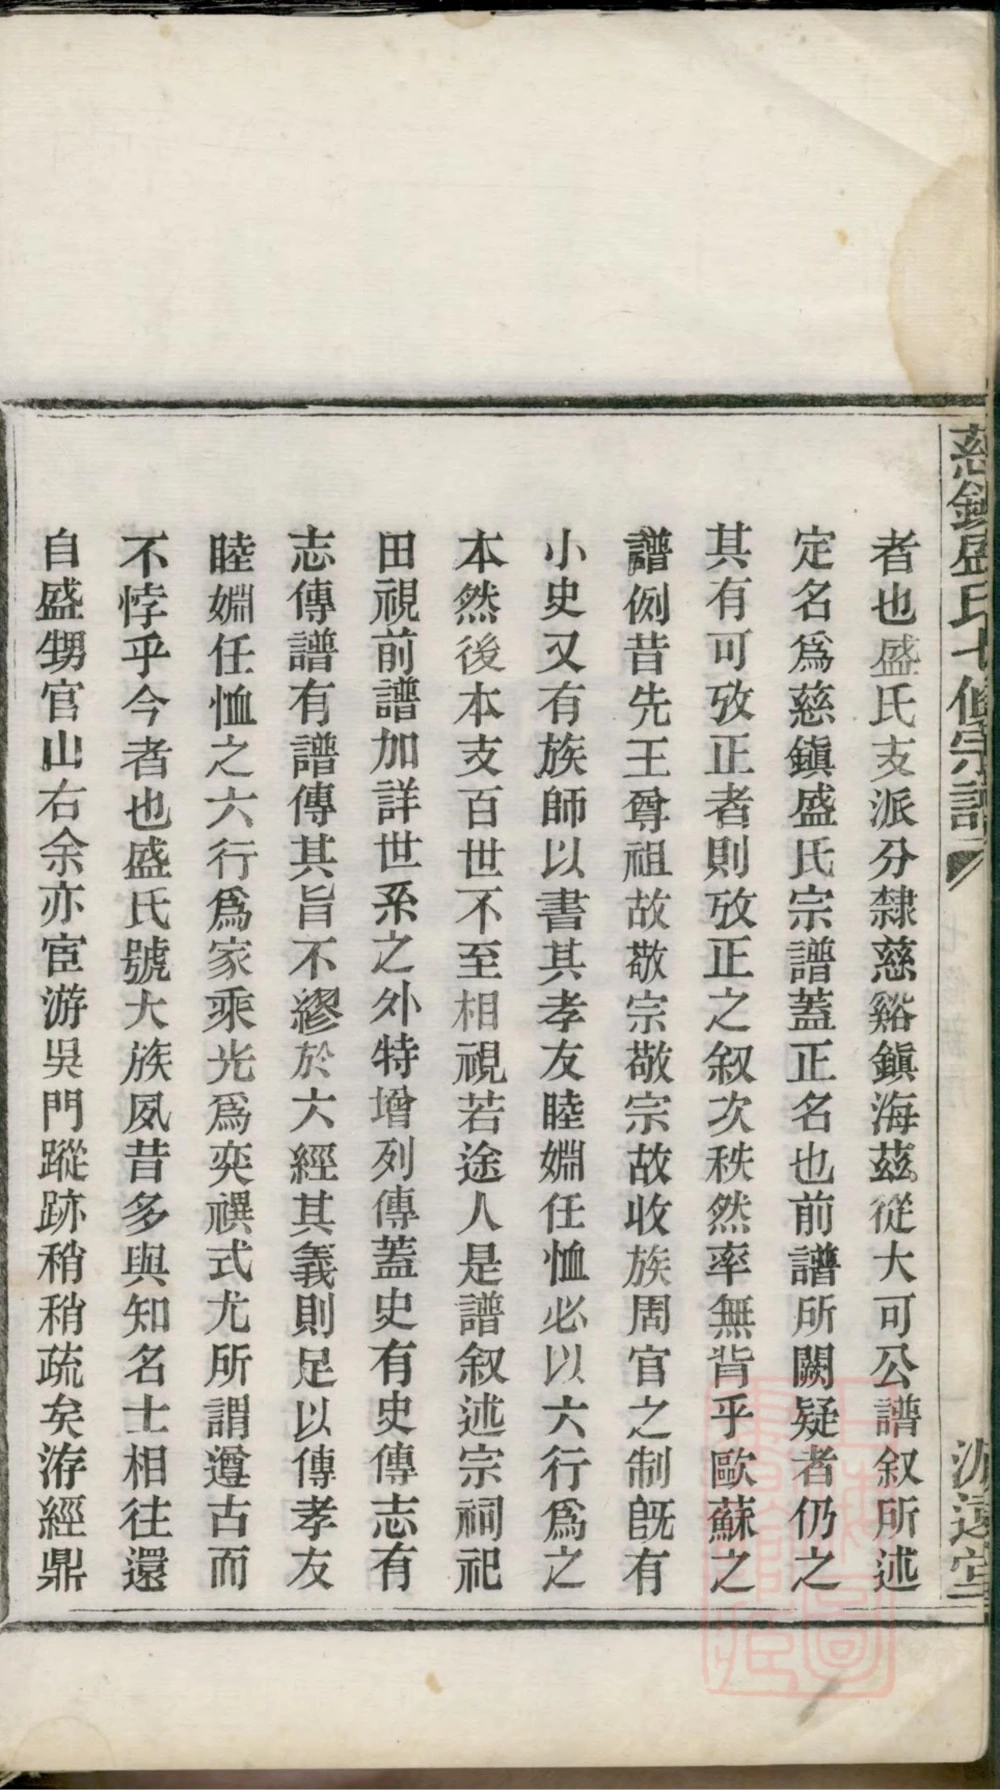 慈鎮盛氏七修宗譜
源遠堂
者也盛氏支派分隸慈谿鎮海茲從大可公譜叙所述
定名爲慈鎮盛氏宗譜蓋正名也前譜所闕疑者仍之
其有可攷正者則攷正之叙次秩然率無背乎歐蘇之
譜例昔先王尊祖故敬宗敬宗故收族周官之制旣有
小史又有族師以書其孝友睦婣任恤必以六行爲之
本然後本支百世不至相視若途人是譜叙述宗祠祀
田視前譜加詳世系之外特增列傳蓋史有史傳志有
志傳譜有譜傳其旨不繆於六經其義則足以傳孝友
睦婣任恤之六行爲家乘光爲奕禩式尤所謂遵古而
不悖乎今者也盛氏號大族夙昔多與知名士相往還
自盛甥官山右余亦宦游吳門蹤跡稍稍疏矣洊經鼎